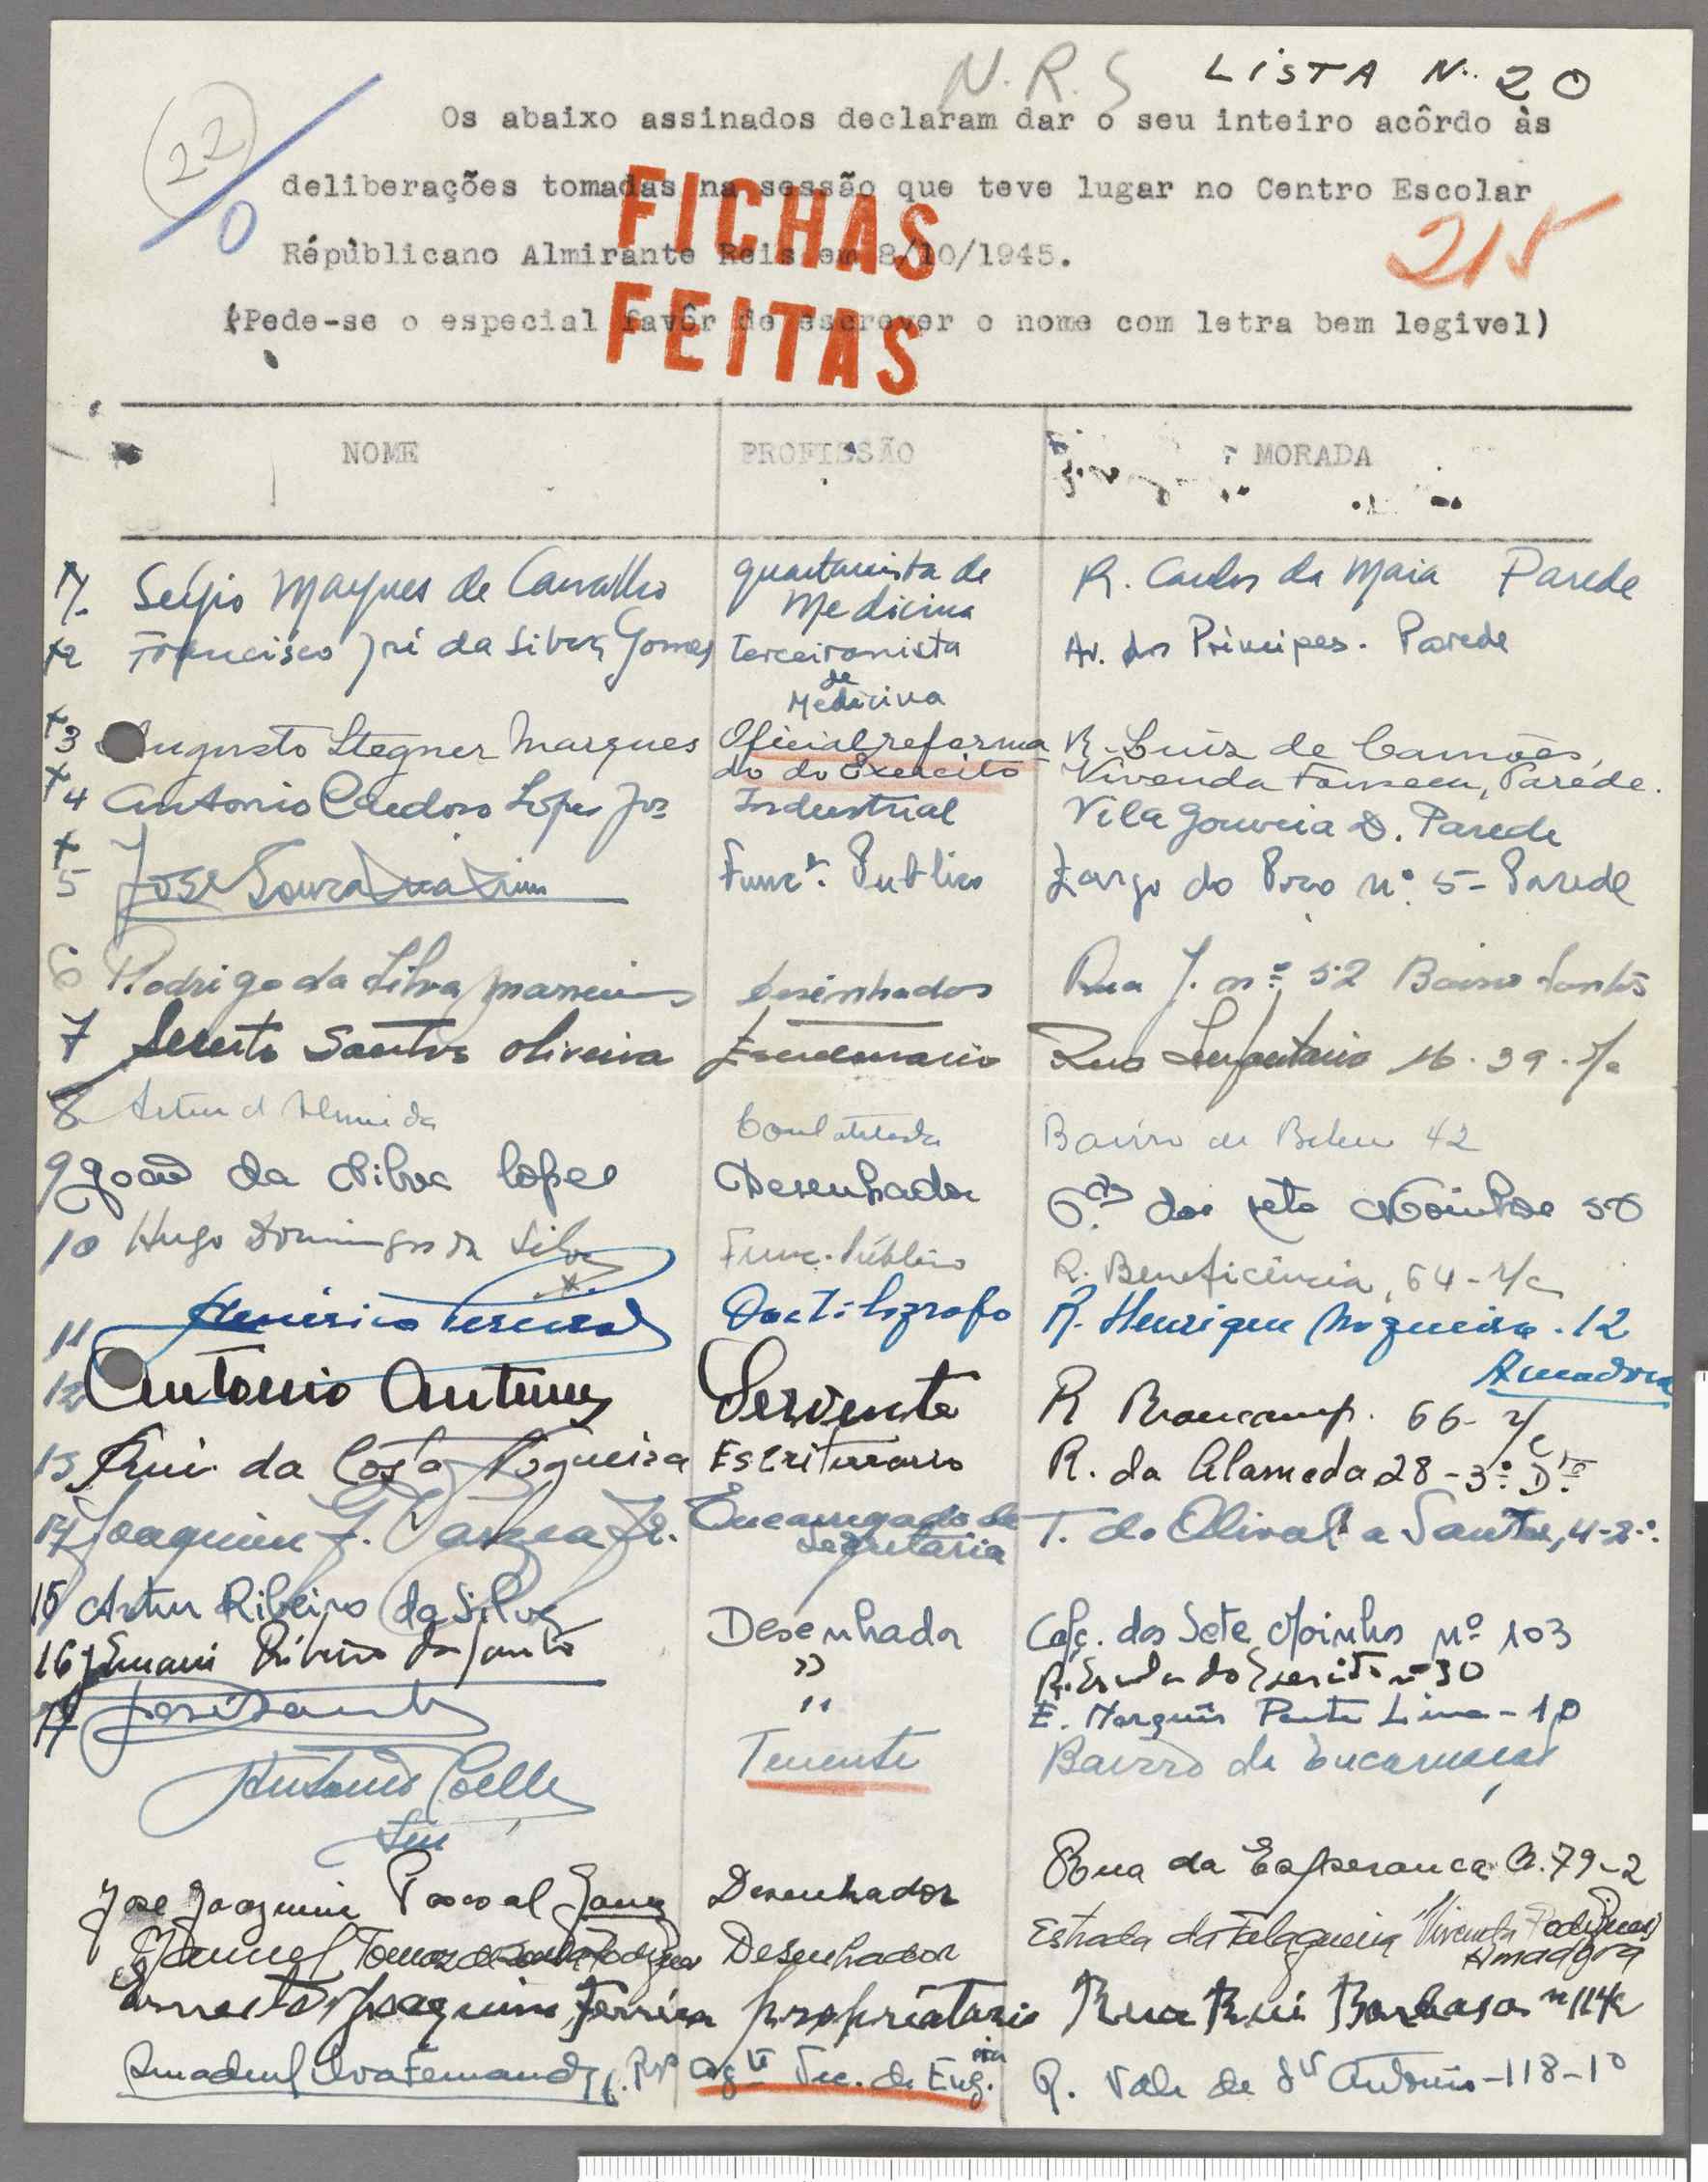 N.R.S LISTA N.. 20
(22)
0
Os abaixo assinados declaram dar o seu inteiro acôrdo às
deliberações tomadas na sessão que teve lugar no Centro Escolar
Républicano Almirante Reis em 8/10/1945.
(Pede-se o especial favôr de escrever o nome com letra bem legivel)
FICHAS
FEITAS
215
NOME PROFISSÃO MORADA
1 Sérgio Marques de Carvalho quartanista de Medicina R. Carlos da Maia Parede
2 Francisco José da Silva Gomes Terceiranista de Medicina Av. dos Principes. Parede
3 Augusto Stegner Marques Oficial reformado do Exercito R. Luís de Camões, Vivenda Fonseca, Parede.
4 Antonio Cardoso Lopes Jor Industrial Vila Gouveia D. Parede
5 José Sousa Func. Publico Largo do Poço nº 5 - Parede
6 Rodrigo da Silva desenhador Rua J. nº 52 Bairro
7 Santos Oliveira Rua 16. 39. r/c
8 Artur d'Almeida Bairro de Belem 42
9 João da Silva Lopes Desenhador dos sete Moinhos 50
10 Hugo Domingos da Silva Func. Público R. Beneficência, 64 - r/c
11 Dactilografo R. Henrique Nogueira. 12 Amadora
12 Antonio Antunes Servente R Braancamp. 66 - r/c
13 Rui da Costa Nogueira Escriturario R. da Alameda 28 - 3º Dto
14 Joaquim G. Jr. Encarregado de Secretaria T. do Olival a Santos, 4-2º.
15 Artur Ribeiro da Silva Desenhador Calç. dos Sete Moinhos nº 103
16 Ernani Ribeiro " R. Escola do Exercito nº 30
17 José Santos " E. Marquês Ponte Lima - 10
Antonio Coelho Tenente Bairro da Encarnação
José Joaquim Pascoal Desenhador Rua da Esperança 79-2
Manuel Tomaz Rodrigues Desenhador Estrada da Falagueira Vivenda Rodrigues Amadora
Ernesto Joaquim Ferreira proprietario Rua Rui Barbosa nº 11
Amadeu Fernandes Agte Tec. de Engria. R. Vale de Sto António - 118 - 1º